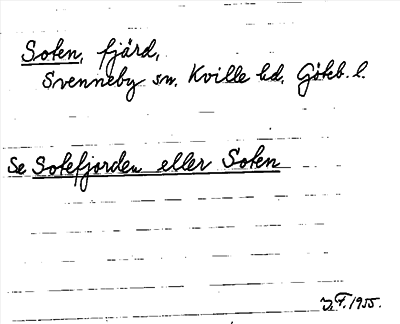 Soten, fjärd,
Svenneby sn. Kville hd. Göteb. l.
Se Sotefjorden eller Soten
F. 1955.